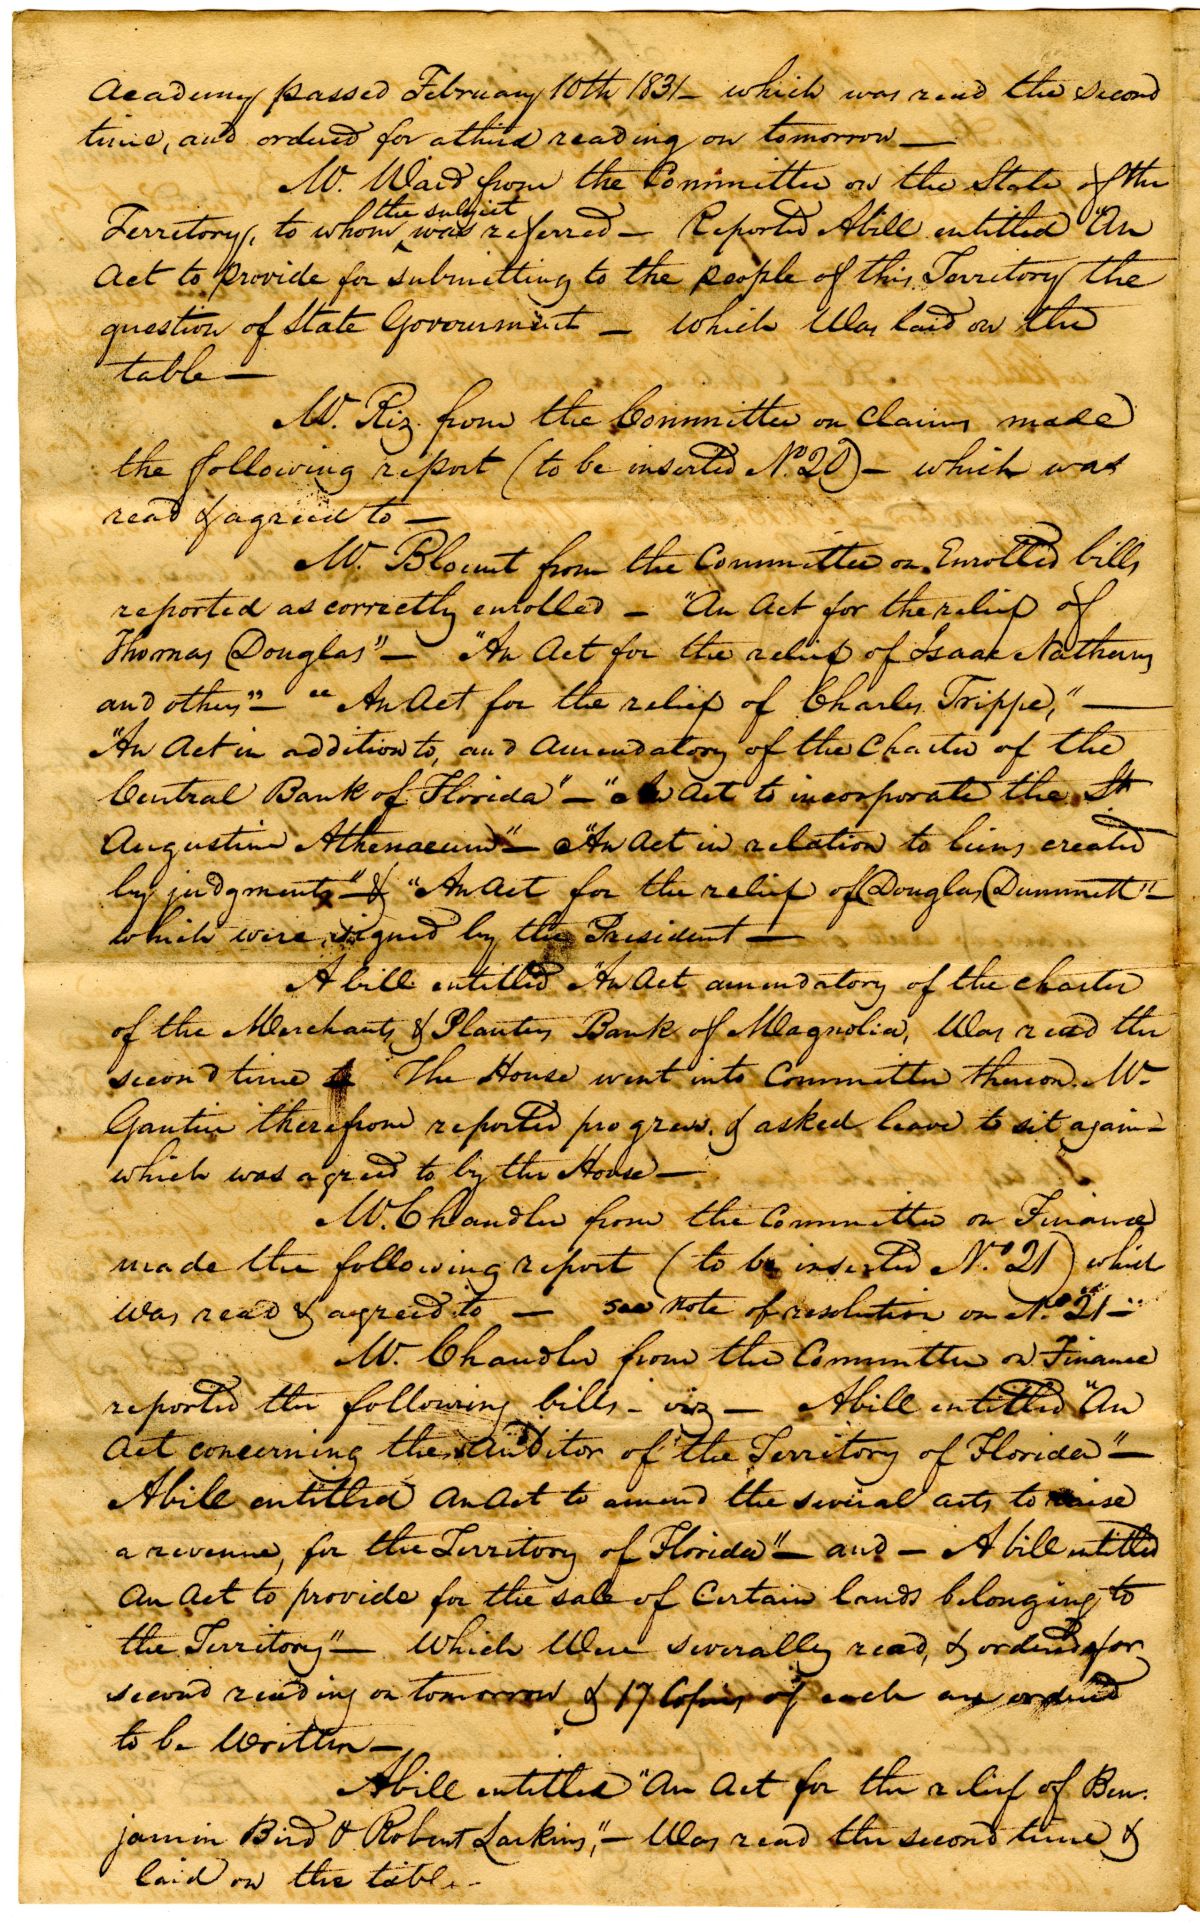 Academy passed February 10th 1831 – which was read the second
time, and ordered for a third reading on tomorrow —
Mr. Ward from the Committee on the State of the
Territory, to whom the subject was referred – Reported A bill entitled "An
Act to provide for submitting to the people of this Territory the
question of State Government – which Was laid on the
table —
Mr. Riz from the Committee on Claims made
the following report (to be inserted No. 20) – which was
read & agreed to —
Mr. Blount from the Committee on Enrolled bills
reported as correctly enrolled – "An Act for the relief of
Thomas Douglas" – "An Act for the relief of Isaac Nathans
and others" – "An Act for the relief of Charles Trippe," —
"An Act in addition to, and Amendatory of the Charter of the
Central Bank of Florida" – "An Act to incorporate the St
Augustine Athenaeum" – "An Act in relation to liens created
by judgments" – & "An Act for the relief of Douglas Dummett" –
which were signed by the President —
A bill entitled "An Act amendatory of the charter
of the Merchants & Planters Bank of Magnolia, Was read the
second time The House went into Committee thereon. Mr.
Gautier therefrom reported progress. & asked leave to sit again –
which was agreed to by the House —
Mr. Chandler from the Committee on Finance
made the following report (to be inserted No. 21) which
was read & agreed to — see note of resolution on No. 21 –
Mr. Chandler from the Committee on Finance
reported the following bills – viz – A bill entitled "An
Act concerning the Auditor of the Territory of Florida" –
A bill entitled An Act to amend the several acts to raise
a revenue, for the Territory of Florida" – and – A bill entitled
An Act to provide for the sale of Certain lands belonging to
the Territory" – Which Were severally read, & ordered for
second reading on tomorrow & 17 Copies of each are ordered
to be Written —
A bill entitled "An Act for the relief of Ben-
jamin Bird & Robert Larkins," – Was read the second time &
laid on the table –